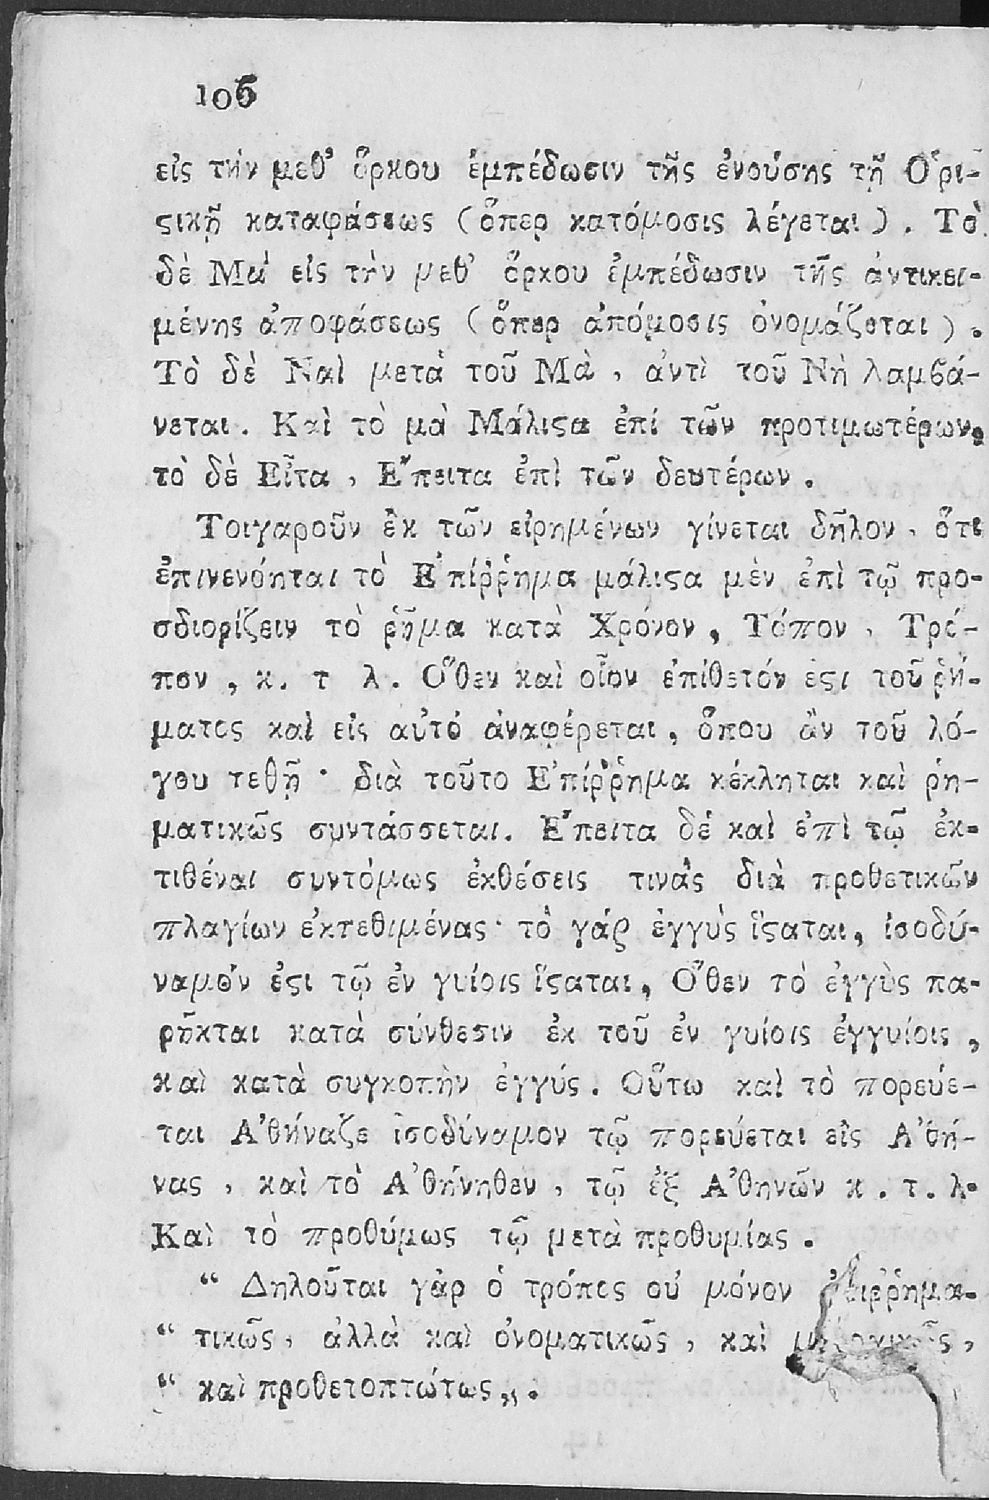 106
εἰς τὴν μεθ' ὅρκου ἐμπέδωσιν τῆς ἐνούσης τῇ Ὁρι-
ϛικῇ καταφάσεως (ὅπερ κατόμοσις λέγεται). Τὸ
δὲ Μὰ εἰς τὴν μεθ' ὅρκου ἐμπέδωσιν τῆς ἀντικει-
μένης ἀποφάσεως (ὅπερ ἀπόμοσις ὀνομάζεται).
Τὸ δὲ Ναὶ μετὰ τοῦ Μὰ, ἀντὶ τοῦ Νὴ λαμβά-
νεται. Καὶ τὸ μὰ Μάλιϛα ἐπί τῶν προτιμωτέρων,
τὸ δὲ Εἶτα, Ἔπειτα ἐπὶ τῶν δευτέρων.
Τοιγαροῦν ἐκ τῶν εἰρημένων γίνεται δῆλον, ὅτι
ἐπινενόηται τὸ Ἐπίῤῥημα μάλιϛα μὲν ἐπὶ τῷ προ-
σδιορίζειν τὸ ῥῆμα κατὰ Χρόνον, Τόπον, Τρό-
πον, κ. τ λ. Ὅθεν καὶ οἷον ἐπίθετόν ἐϛι τοῦ ῥή-
ματος καὶ εἰς αὐτὸ ἀναφέρεται, ὅπου ἂν τοῦ λό-
γου τεθῇ· διὰ τοῦτο Ἐπίῤῥημα κέκληται καὶ ῥη-
ματικῶς συντάσσεται. Ἔπειτα δὲ καὶ ἐπὶ τῷ ἐκ-
τιθέναι συντόμως ἐκθέσεις τινὰς διὰ προθετικῶν
πλαγίων ἐκτεθιμένας· τὸ γάρ ἐγγὺς ἵϛαται, ἰσοδύ-
ναμόν ἐϛι τῷ ἐν γυίοις ἵϛαται, Ὅθεν τὸ ἐγγὺς πα-
ρῆκται κατὰ σύνθεσιν ἐκ τοῦ ἐν γυίοις ἐγγυίοις,
καὶ κατὰ συγκοπὴν ἐγγύς. Οὕτω καὶ τὸ πορεύε-
ται Ἀθήναζε ἰσοδύναμον τῷ πορεύεται εἰς Ἀθή-
νας, καὶ τὸ Ἀθήνηθεν, τῷ ἐξ Ἀθηνῶν κ. τ. λ.
Καὶ τὸ προθύμως τῷ μετὰ προθυμίας.
“ Δηλοῦται γὰρ ὁ τρόπος οὐ μόνον ἐπιῤῥημα-
“ τικῶς, ἀλλὰ καὶ ὀνοματικῶς, καὶ
“ καὶ προθετοπτώτως„.